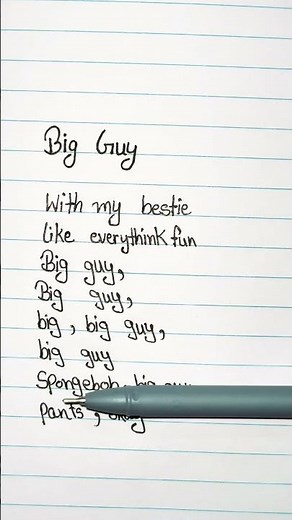 Big Guy
With my bestie
like everythink fun
Big guy,
Big guy,
big, big guy,
big guy
Spongebob big guy
pants, okay